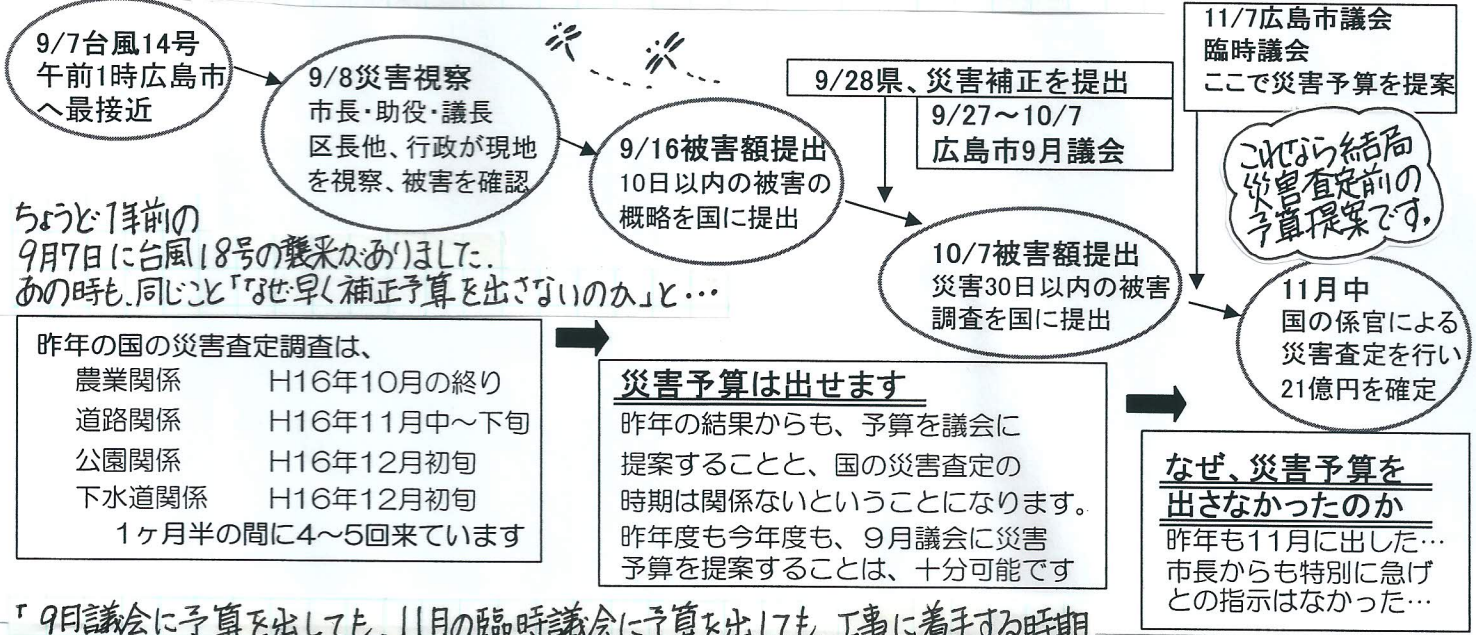 9/7台風14号
午前1時広島市
へ最接近
9/8災害視察
市長・助役・議長
区長他、行政が現地
を視察、被害を確認
9/16被害額提出
10日以内の被害の
概略を国に提出
9/28県、災害補正を提出
9/27～10/7
広島市9月議会
11/7広島市議会
臨時議会
ここで災害予算を提案
これなら結局
災害査定前の
予算提案です。
10/7被害額提出
災害30日以内の被害
調査を国に提出
11月中
国の係官による
災害査定を行い
21億円を確定
ちょうど1年前の
9月7日に台風18号の襲来がありました。
あの時も、同じこと「なぜ早く補正予算を出さないのか」と…
昨年の国の災害査定調査は、
農業関係 H16年10月の終り
道路関係 H16年11月中～下旬
公園関係 H16年12月初旬
下水道関係 H16年12月初旬
1ヶ月半の間に4～5回来ています
災害予算は出せます
昨年の結果からも、予算を議会に
提案することと、国の災害査定の
時期は関係ないということになります。
昨年度も今年度も、9月議会に災害
予算を提案することは、十分可能です
なぜ、災害予算を
出さなかったのか
昨年も11月に出した…
市長からも特別に急げ
との指示はなかった…
「9月議会に予算を出しても、11月の臨時議会に予算を出しても、工事に着手する時期